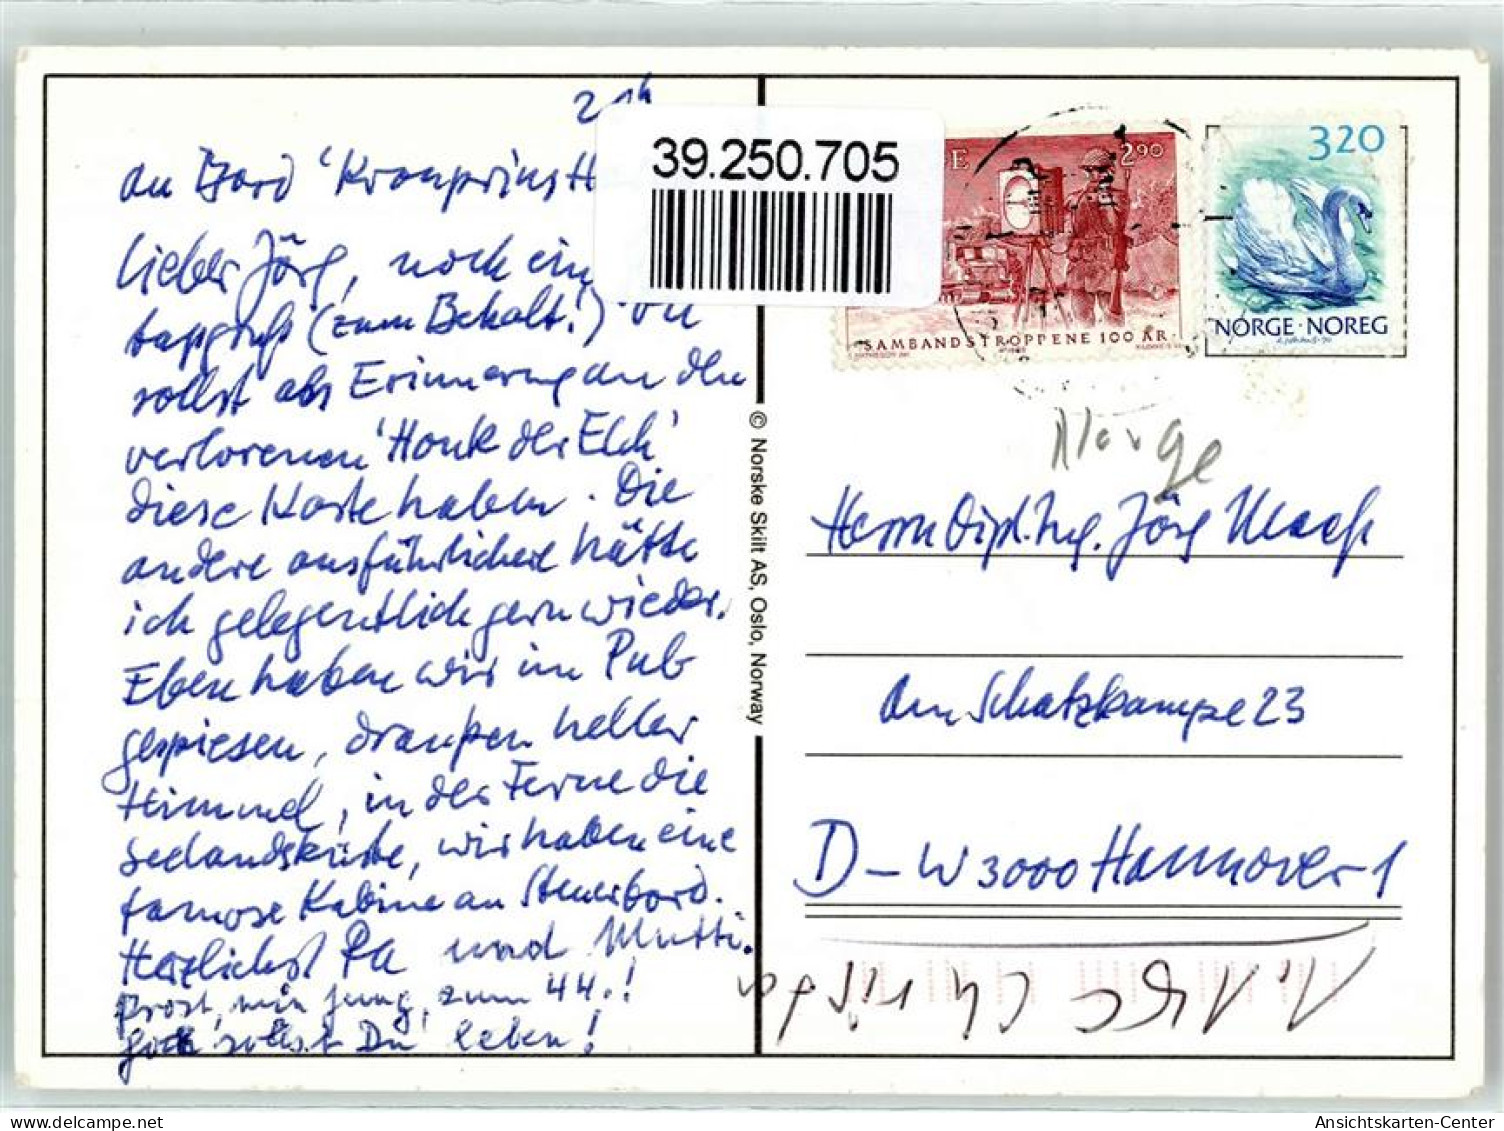 21h
an Bord 'Kronprins H
Lieber Jörg, noch ein
(zum Behalt!) Du
sollst als Erinnerung an den
verlorenen 'Honk der Elch'
diese Karte haben. Die
andere ausführlichere hätte
ich gelegentlich gern wieder.
Eben haben wir im Pub
gespiesen, draußen heller
Himmel, in der Ferne die
Seelandsküste, wir haben eine
famose Kabine an Steuerbord.
Herzlichst Pa und Mutti.
Prost, min Jung, zum 44.!
hoch sollst Du leben!
39.250.705
E 2.90
SAMBANDSTROPPENE 100 ÅR
3.20
NORGE · NOREG
© Norske Skilt AS, Oslo, Norway
Norge
Herrn Dipl. Ing. Jörg
Am Schatzkampe 23
D-W 3000 Hannover 1
delcampe.net
Ansichtskarten-Center